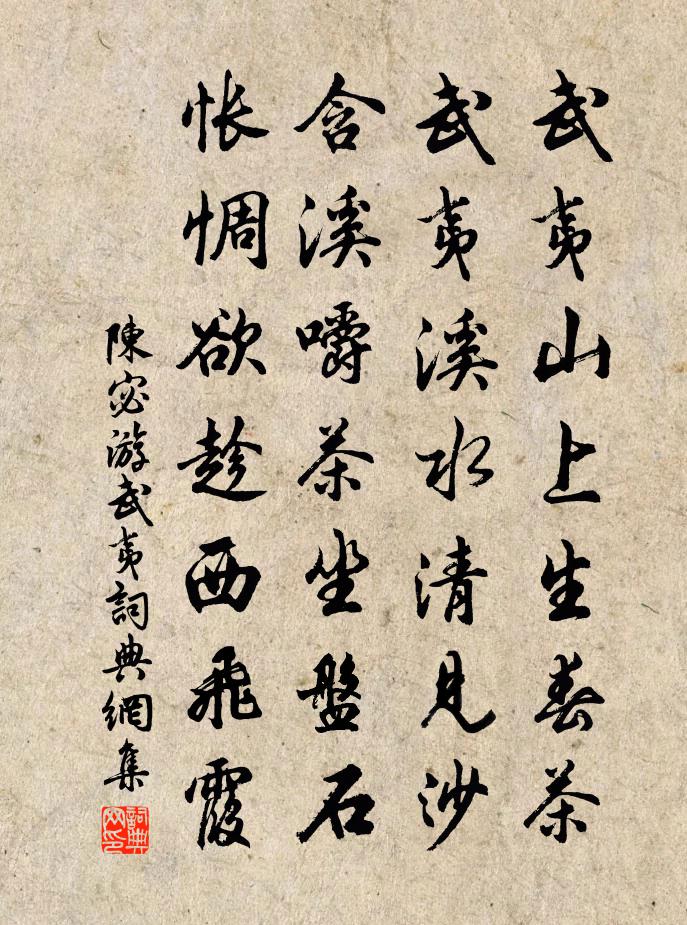 武夷山上生春茶
武夷溪水清見沙
含溪嚼茶坐盤石
悵惆欲趁西飛霞
陳宓游武夷詞典網集
詞典網印